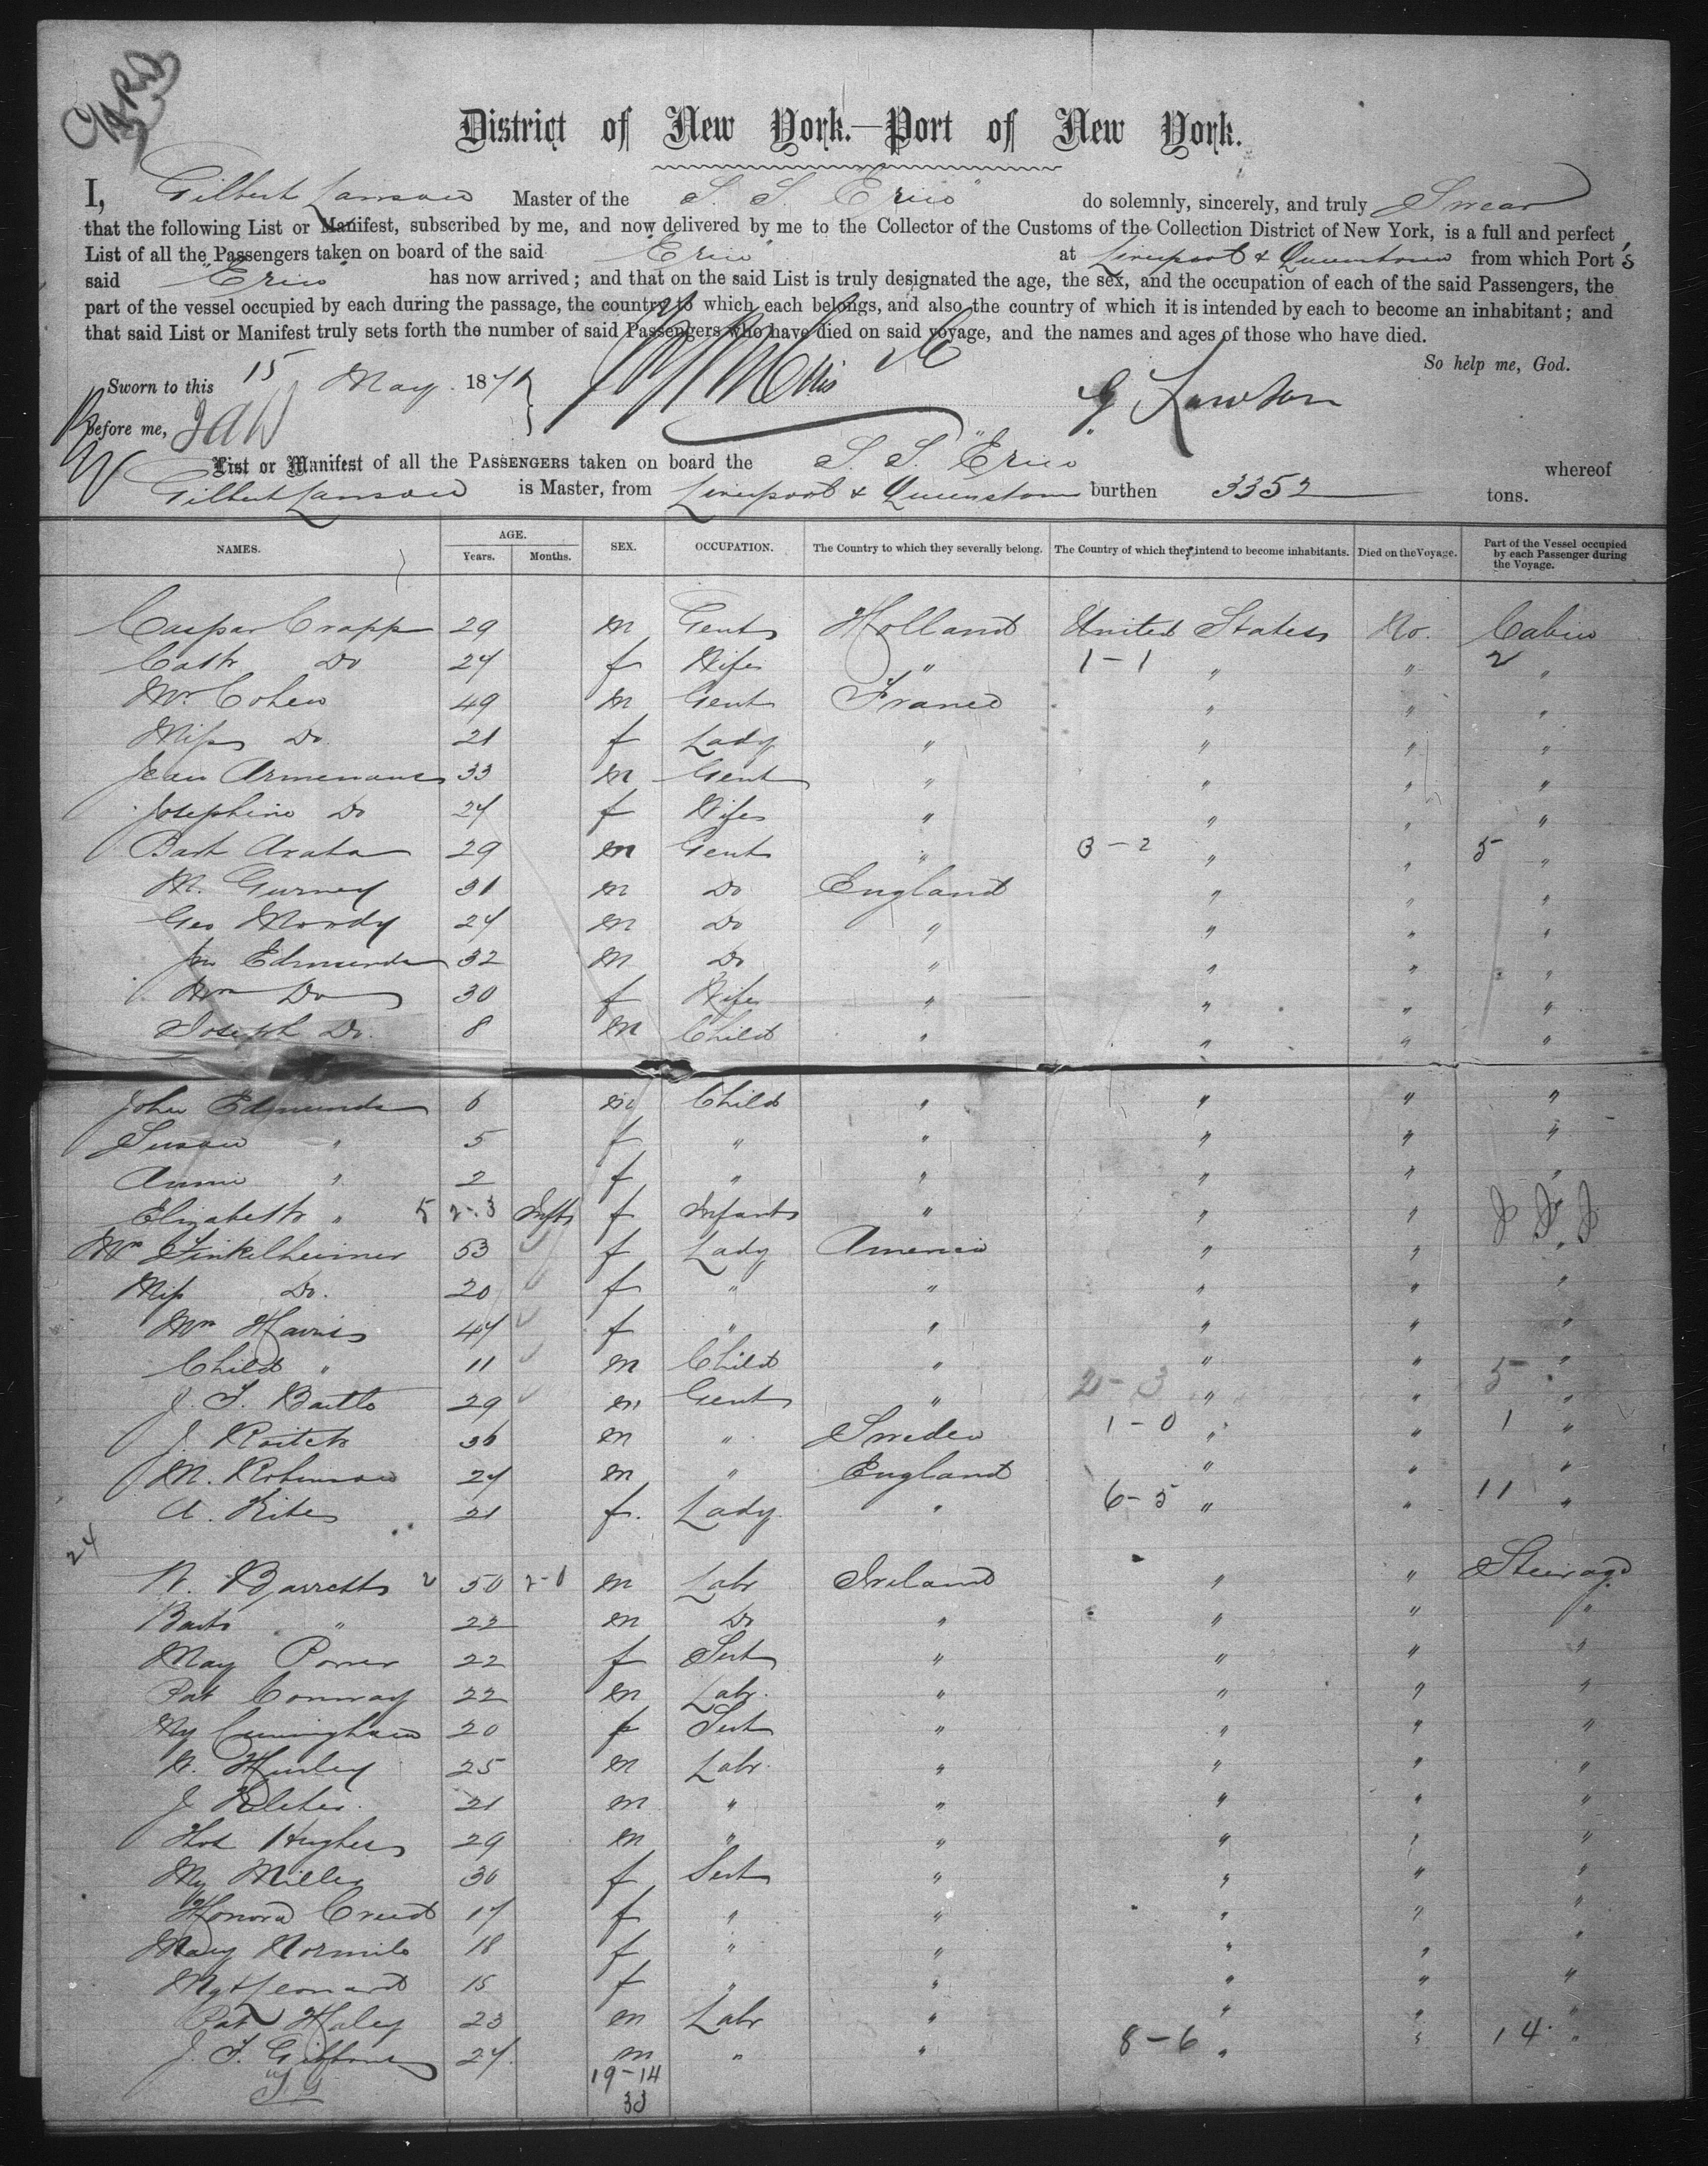 CARD
District of New York.—Port of New York.
I, Gilbert Lawson Master of the S. S. "Erin" do solemnly, sincerely, and truly Swear
that the following List or Manifest, subscribed by me, and now delivered by me to the Collector of the Customs of the Collection District of New York, is a full and perfect
List of all the Passengers taken on board of the said "Erin" at Liverpool & Queenstown from which Port's
said "Erin" has now arrived; and that on the said List is truly designated the age, the sex, and the occupation of each of the said Passengers, the
part of the vessel occupied by each during the passage, the country to which each belongs, and also the country of which it is intended by each to become an inhabitant; and
that said List or Manifest truly sets forth the number of said Passengers who have died on said voyage, and the names and ages of those who have died.
So help me, God.
Sworn to this 15 May 187
Before me, G Lawson
List or Manifest of all the PASSENGERS taken on board the S. S. "Erin" whereof
Gilbert Lawson is Master, from Liverpool & Queenstown burthen 3352 tons.
NAMES. AGE. Years. Months. SEX. OCCUPATION. The Country to which they severally belong. The Country of which they intend to become inhabitants. Died on the Voyage. Part of the Vessel occupied by each Passenger during the Voyage.
Caspar Crapp 29 m Gent Holland United States No. Cabin
Cath Do 24 f Wife " 1-1 " " 2 "
Mr. Cohen 49 m Gent France " " "
Miss Do. 21 f Lady " " " "
Jean 33 m Gent " " " "
Josephine Do 24 f Wife " " " "
Bart Arata 29 m Gent " 3-2 " " 5 "
M. Gurney 31 m Do England " " "
Geo Mordy 24 m Do " " " "
Jno Edmunds 32 m Do " " " "
Mrs Do 30 f Wife " " " "
Joseph Do. 8 m Child " " " "
John Edmunds 6 m Child " " " "
Susan " 5 f " " " " "
Annie " 2 f " " " " "
Elizabeth " 5 2-3 Infts f Infants " " "
Mrs Finkelheimer 53 f Lady America " " "
Miss Do. 20 f " " " " "
Mrs Harris 47 f " " " " "
Child " 11 m Child " " " "
J. T. Bartto 29 m Gent " 2-3 " " 5 "
J. 36 m " Sweden 1-0 " " 1 "
M. Robinson 24 m " England " " "
A. Kite 21 f. Lady " 6-5 " " 11 "
24
N. Barrett 2 50 2-0 m Labr Ireland " " Steerage
Bart " 22 m Do " " " "
May Power 22 f Sert " " " "
Pat Conway 22 m Labr. " " " "
My Cunningham 20 f Sert " " " "
25 m Labr. " " " "
J. Keleher 21 m " " " " "
Thos Hughes 29 m " " " " "
My Miller 30 f Sert " " " "
Honora Creed 17 f " " " " "
Mary Normile 18 f " " " " "
Mgt Leonard 15 f " " " " "
Pat Haley 23 m Labr " " " "
J. T. Gibbons 24 m " " 8-6 " " 14 "
19-14
33